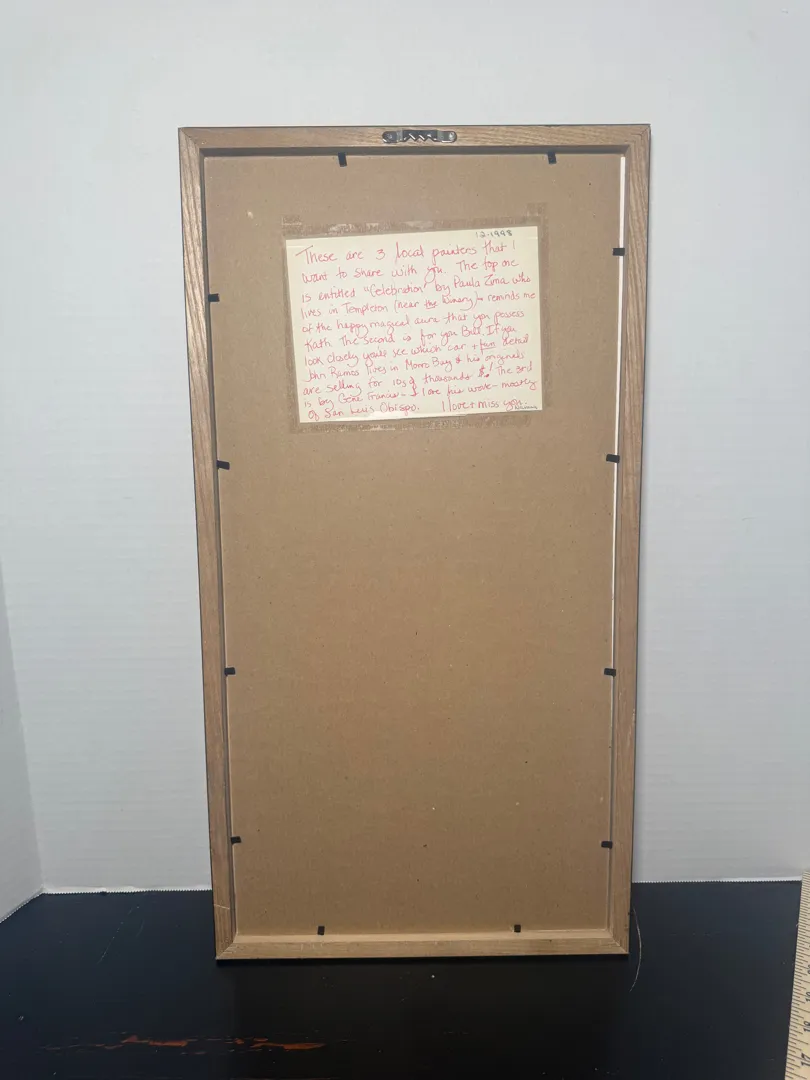 12.1998
These are 3 local painters that I
want to share with you. The top one
is entitled "Celebration" by Paula Zima who
lives in Templeton (near the Winery) & reminds me
of the happy magical aura that you possess
Kath. The second is for you Bill. If you
look closely you'll see which car + detail
John Ramos lives in Morro Bay & his originals
are selling for 10s of thousands $! The 3rd
is by Gene Francis - I love his work - mostly
of San Luis Obispo. I love + miss you.